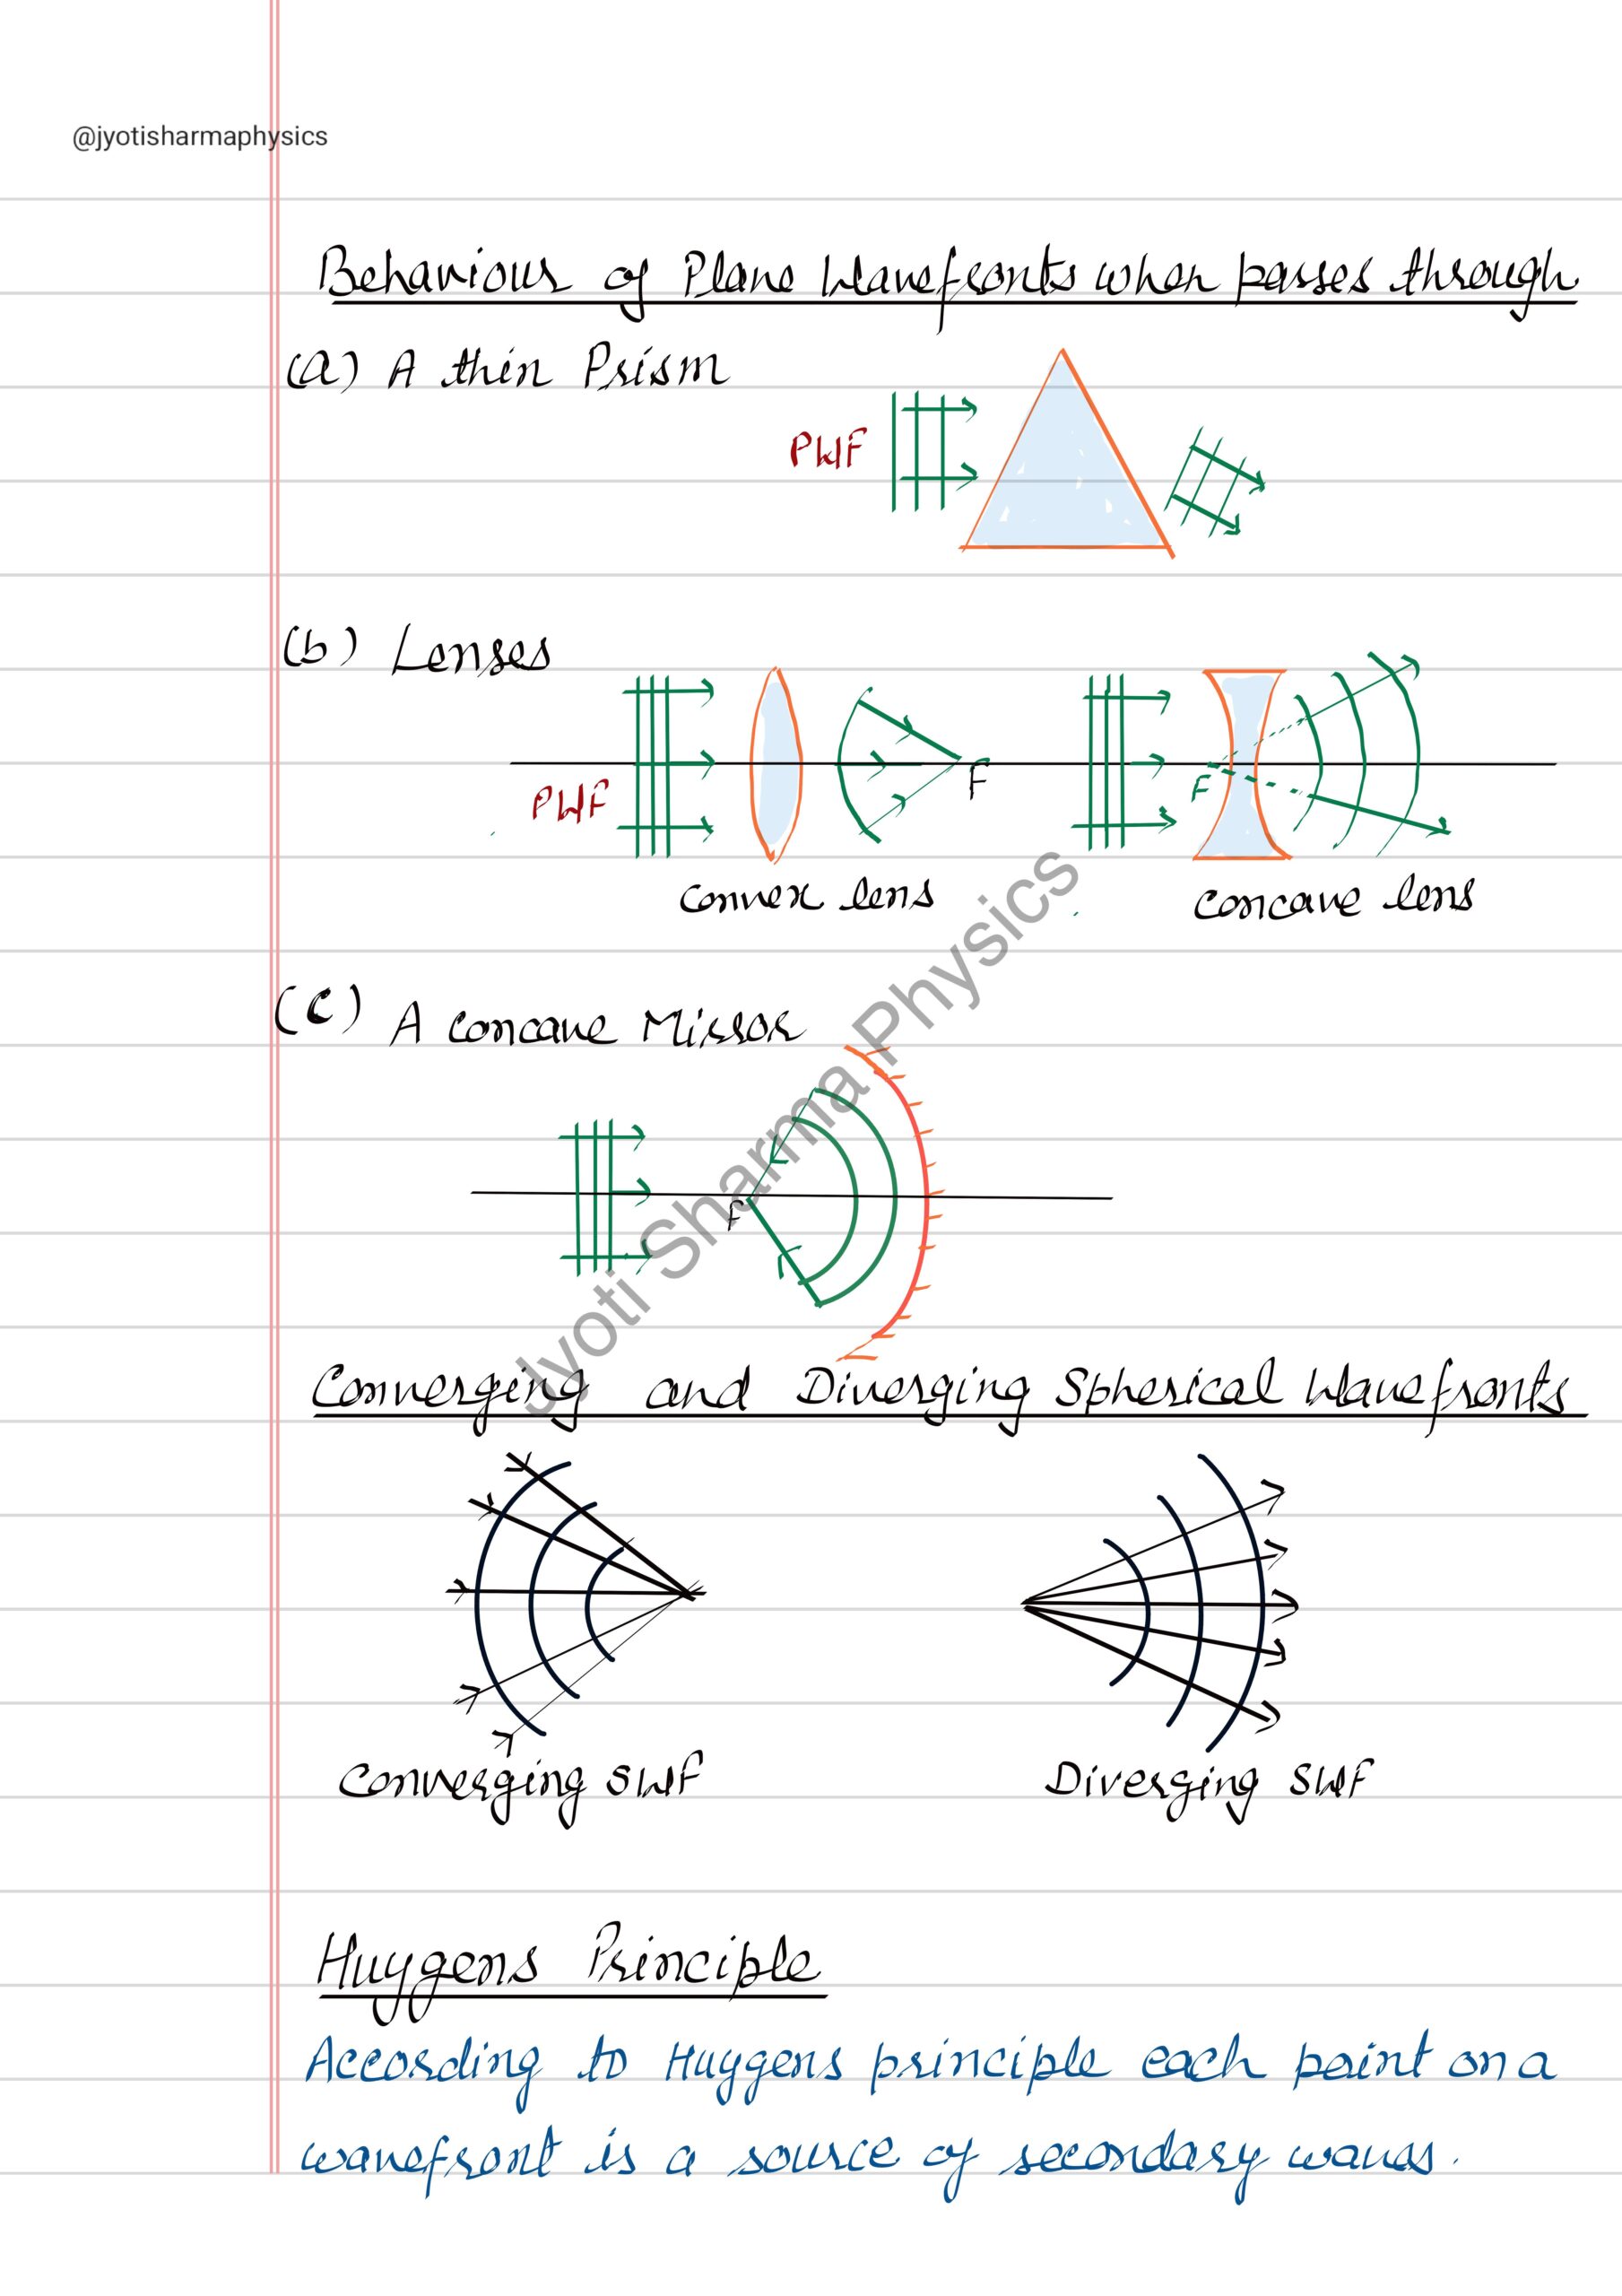 @jyotisharmaphysics
Behaviour of Plane Wavefronts when passes through
(a) A thin Prism
PWF
(b) Lenses
PWF
F
F
convex lens
concave lens
(C) A concave Mirror
F
Jyoti Sharma Physics
Converging and Diverging Spherical Wavefronts
Converging SWF
Diverging SWF
Huygens Principle
According to Huygens principle each point on a
wavefront is a source of secondary waves.